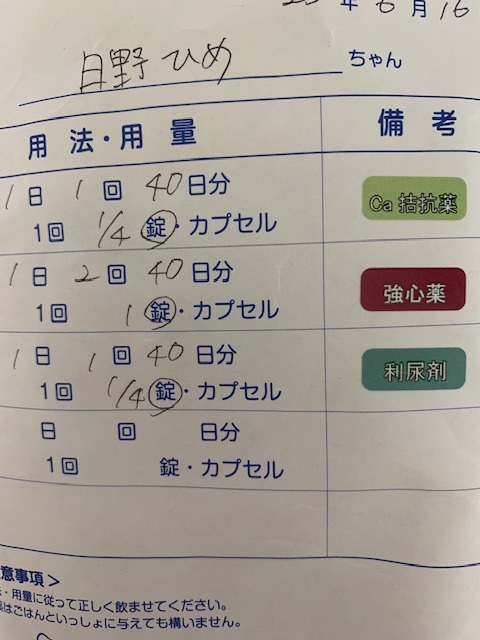 年 6 月 16
日野 ひめ ちゃん
用法・用量 備考
1日 1回 40日分 Ca拮抗薬
1回 1/4 錠・カプセル
1日 2回 40日分 強心薬
1回 1 錠・カプセル
1日 1回 40日分 利尿剤
1回 1/4 錠・カプセル
日 回 日分
1回 錠・カプセル
意事項>
・用量に従って正しく飲ませてください。
はごはんといっしょに与えても構いません。